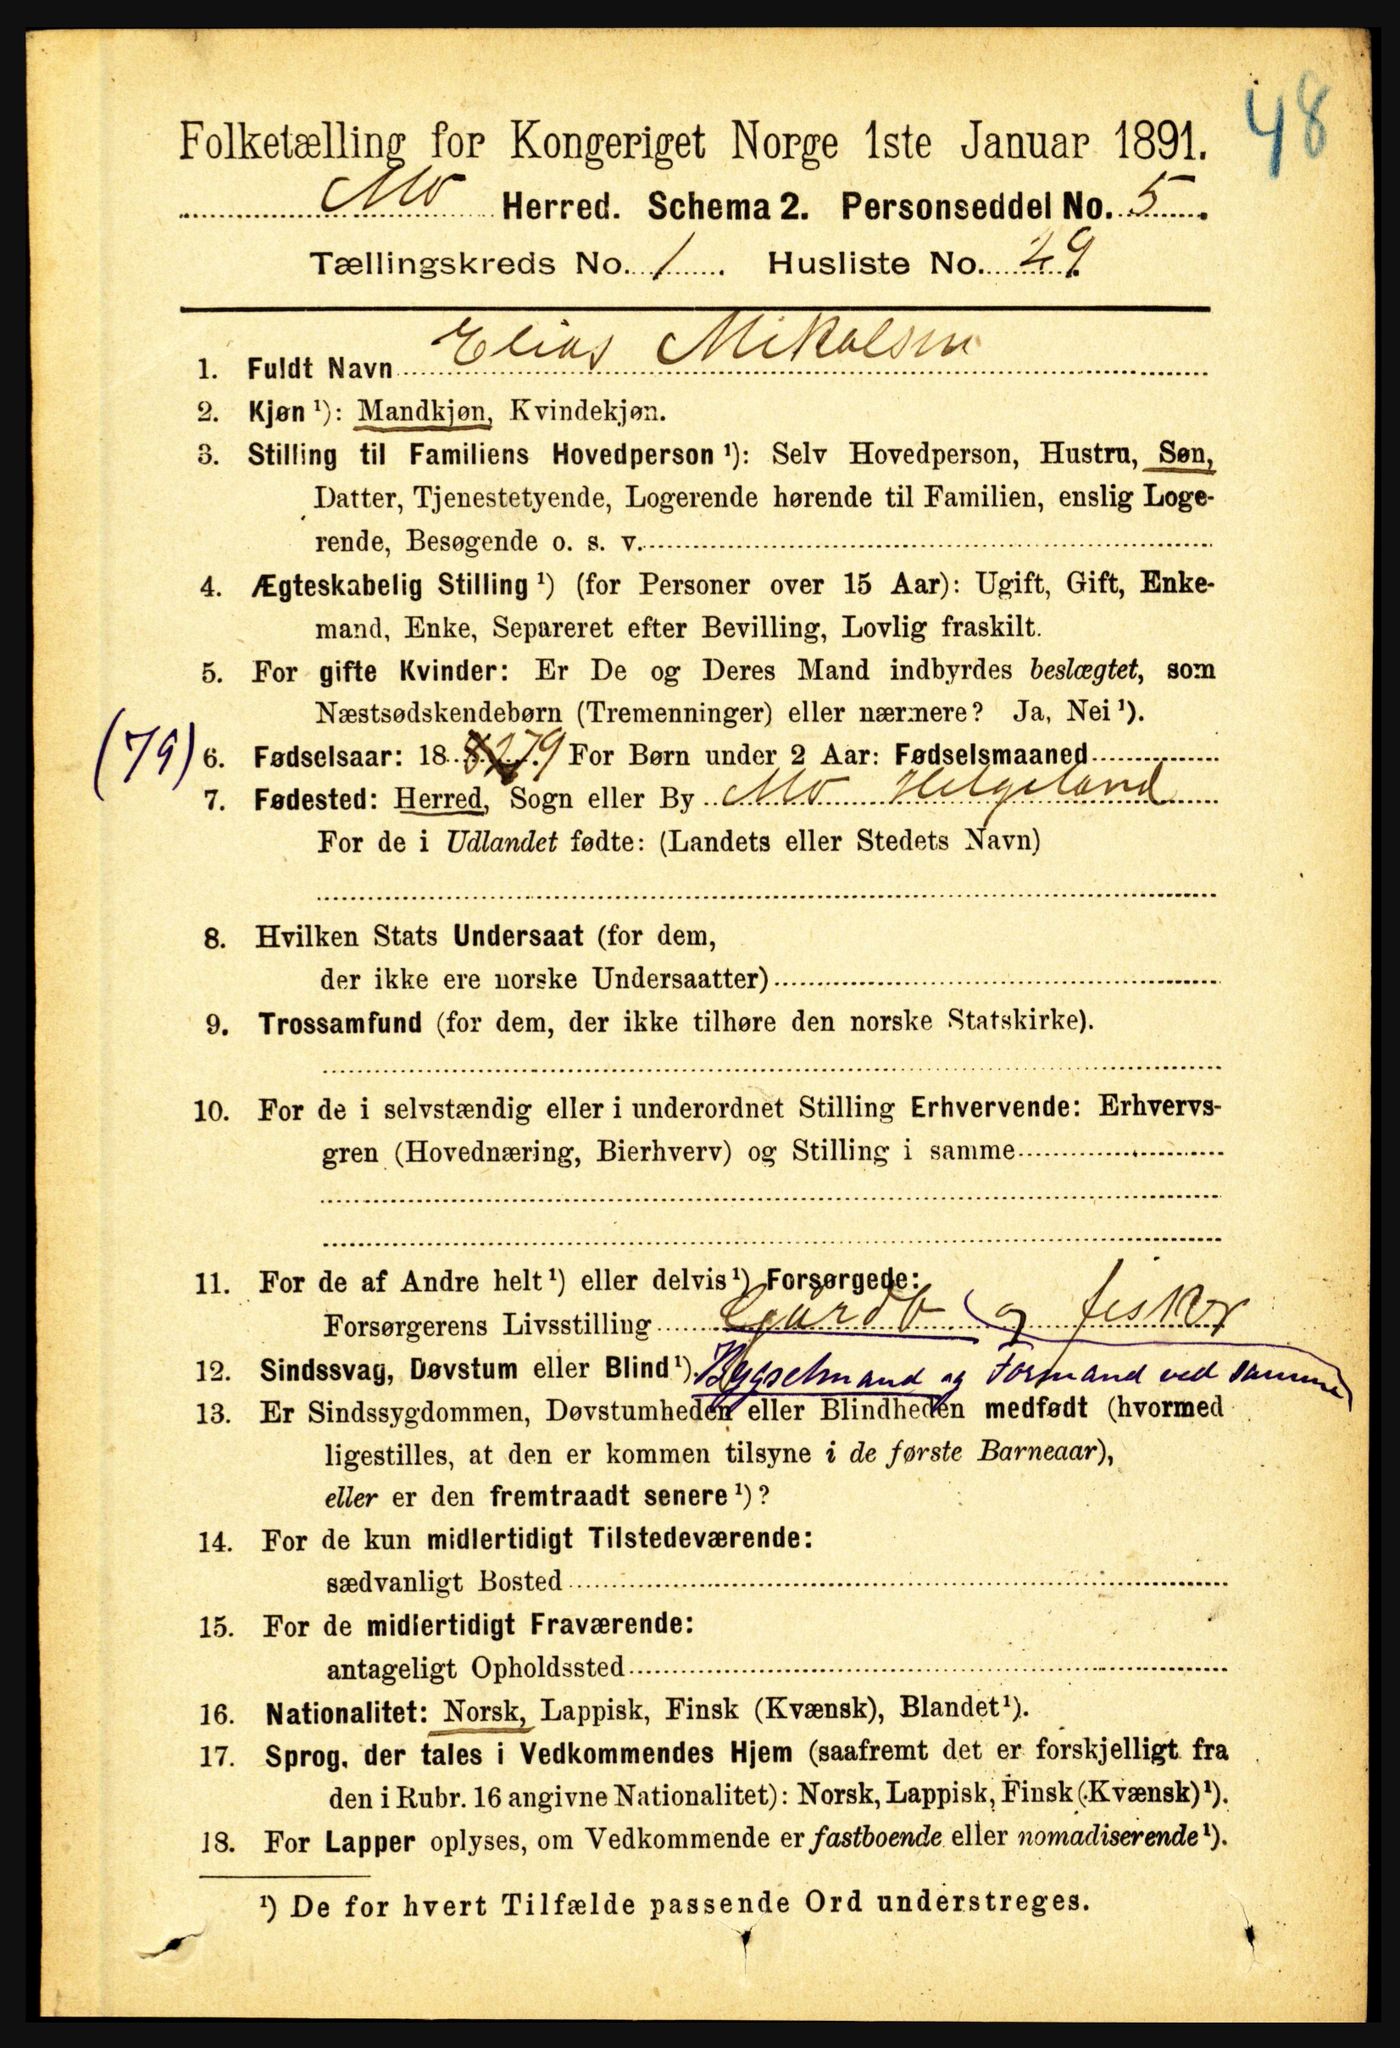 48
Folketælling for Kongeriget Norge 1ste Januar 1891.
Mo Herred. Schema 2. Personseddel No. 5.
Tællingskreds No. 1. Husliste No. 29.
1. Fuldt Navn Elias Mikalsen
2. Kjøn ¹): Mandkjøn, Kvindekjøn.
3. Stilling til Familiens Hovedperson ¹): Selv Hovedperson, Hustru, Søn,
Datter, Tjenestetyende, Logerende hørende til Familien, enslig Loge-
rende, Besøgende o. s. v.
4. Ægteskabelig Stilling ¹) (for Personer over 15 Aar): Ugift, Gift, Enke-
mand, Enke, Separeret efter Bevilling, Lovlig fraskilt.
5. For gifte Kvinder: Er De og Deres Mand indbyrdes beslægtet, som
Næstsødskendebørn (Tremenninger) eller nærmere? Ja, Nei ¹).
(79) 6. Fødselsaar: 18 79 For Børn under 2 Aar: Fødselsmaaned
7. Fødested: Herred, Sogn eller By Mo Helgeland
For de i Udlandet fødte: (Landets eller Stedets Navn)
8. Hvilken Stats Undersaat (for dem,
der ikke ere norske Undersaatter)
9. Trossamfund (for dem, der ikke tilhøre den norske Statskirke).
10. For de i selvstændig eller i underordnet Stilling Erhvervende: Erhvervs-
gren (Hovednæring, Bierhverv) og Stilling i samme
11. For de af Andre helt ¹) eller delvis ¹) Forsørgede:
Forsørgerens Livsstilling Gårdb og fisker
12. Sindssvag, Døvstum eller Blind ¹). Bygselmand og Formand ved samme
13. Er Sindssygdommen, Døvstumheden eller Blindheden medfødt (hvormed
ligestilles, at den er kommen tilsyne i de første Barneaar),
eller er den fremtraadt senere ¹)?
14. For de kun midlertidigt Tilstedeværende:
sædvanligt Bosted
15. For de midlertidigt Fraværende:
antageligt Opholdssted
16. Nationalitet: Norsk, Lappisk, Finsk (Kvænsk), Blandet ¹).
17. Sprog, der tales i Vedkommendes Hjem (saafremt det er forskjelligt fra
den i Rubr. 16 angivne Nationalitet): Norsk, Lappisk, Finsk (Kvænsk) ¹).
18. For Lapper oplyses, om Vedkommende er fastboende eller nomadiserende ¹).
¹) De for hvert Tilfælde passende Ord understreges.